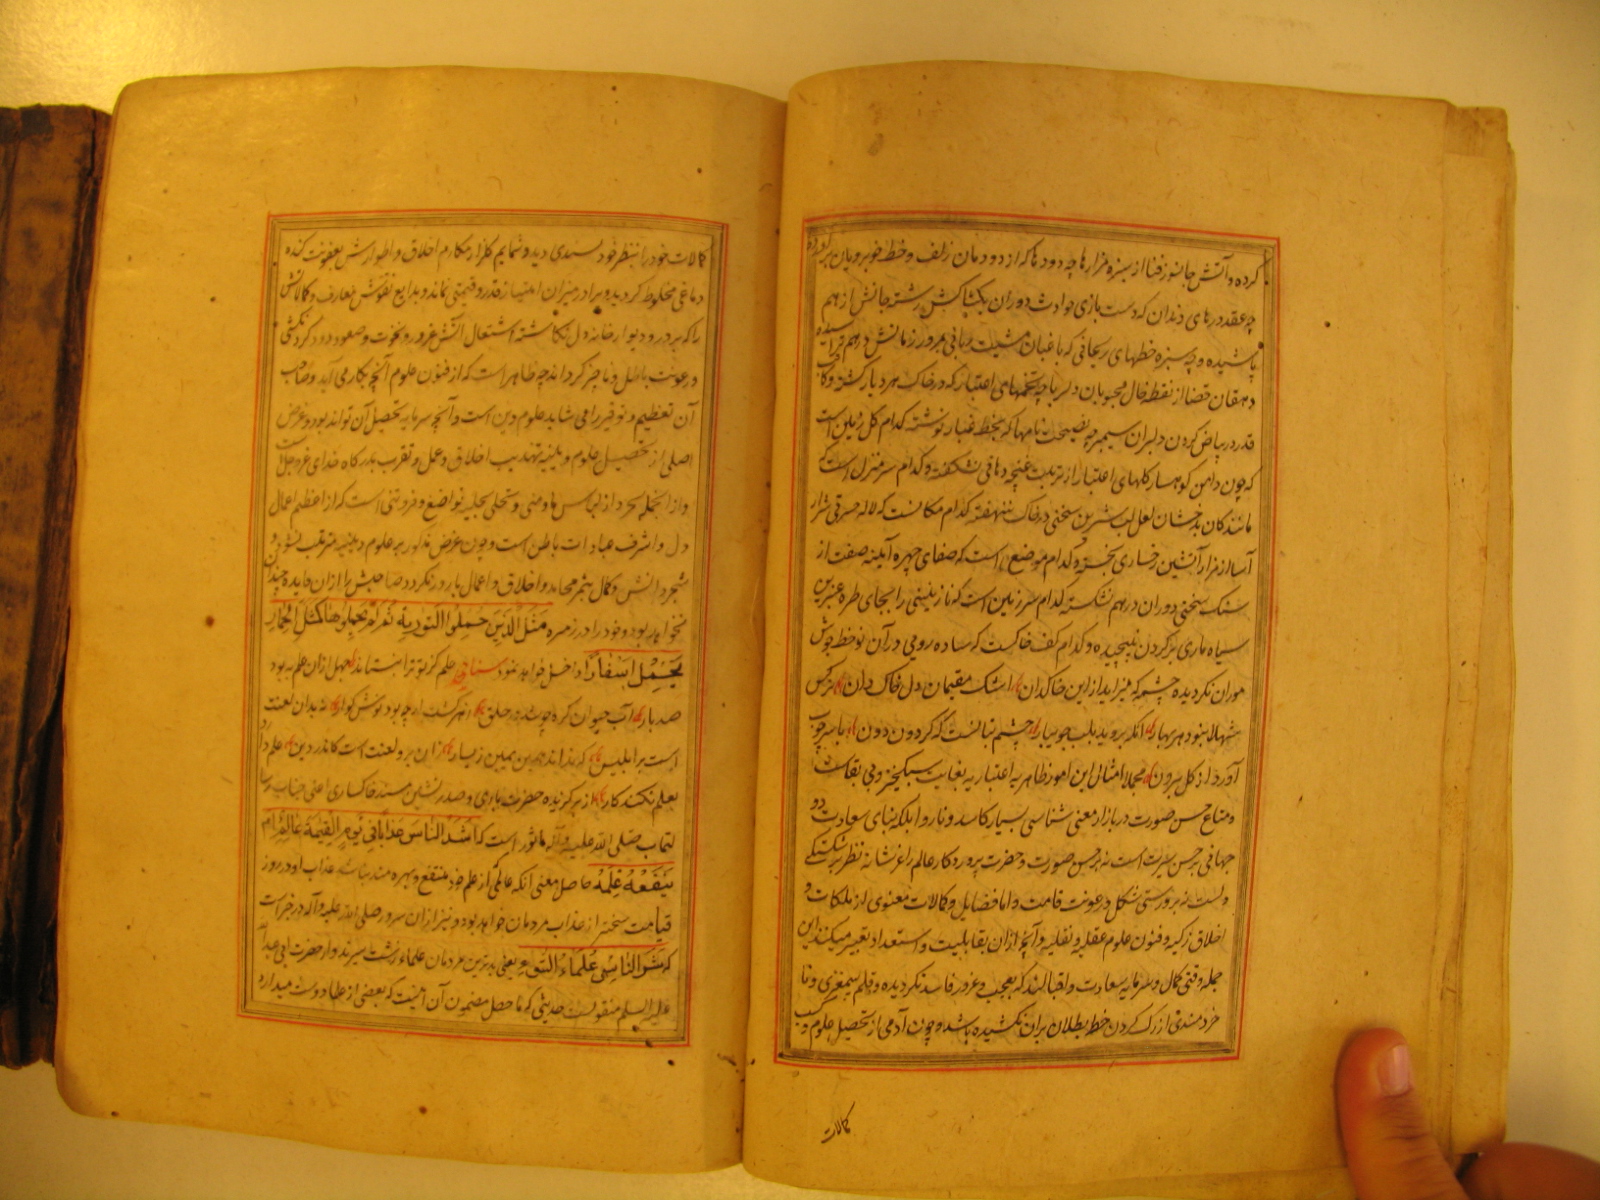 کرده و آتش جانسوز فنا از سبزه عذارها چه دودها که از دودمان زلف و خط خوبرویان برآورده
چه عقد درهای دندان که دست بازی حوادث دوران بکشاکش رشته جانش از هم
پاشیده و چه سبزه خطهای ریحانی که باغبان مشیت ربانی بمرور زمانش درهم
دهقان قضا از نقطه خال محبوبان دلربا چه تخمهای اعتبار که در خاک هر دیار کشته و
قدر در بیاض گردن دلبران سیمبر چه نصیحت نامها که بخط غبار نوشته کدام گل زمین است
که چون دامن کوهسار گلهای اعتبار از تربت غنچه دهانی نشکفته و کدام سرمنزل است که
مانند کان بدخشان لعل لب شیرین سخنی در خاک ننهفته کدام مکانست که لاله
آسا از مزار آتشین رخساری و کدام موضع است که صفای چهره آینه صفت از
سنگ سختی دوران درهم نشکسته کدام سرزمین است که نازنینی را بجای طره عنبرین
سیاه ماری بر گردن نپیچیده و کدام کف خاکست که ساده رویی در آن نوخط جوش
موران نگردیده چشمه که میزاید ازین خاکدان اشک مقیمان دل خاک دان نرگس
شهلا نبود هر بهار آنکه بروید بلب جویبار چشم بتانست که گردون دون با سر چوب
آورد از گل برون مجملا امثال این امور ظاهریه اعتباریه بغایت سبک چیز و بی بقاست
و متاع حسن صورت در بازار معنی شناسی بسیار کاسد و ناروا بلکه بنای سعادت دو
جهانی بر حسن سیرت است نه بر حسن صورت و حضرت پروردگار عالم را عز شانه نظر بر شکستگی
دلست نه بر درستی شکل و رعونت قامت و اما فضایل و کمالات معنوی از ملکات و
اخلاق زکیه و فنون علوم عقلیه و نقلیه و آنچه از آن بقابلیت و استعداد تعبیر میکنند این
جمله وقتی کمال و سرمایه سعادت و اقبالند که بعجب و غرور فاسد نگردیده و قلم بیمغزی و نا
خردمندی از رگ گردن خط بطلان بر آن نکشیده باشد و چون آدمی از تحصیل علوم و کسب
کمالات
کمالات خود را بنظر خودپسندی دید و شمایم گلزار مکارم اخلاق و اطوارش بعفونت گنده
دماغی مخلوط گردید و برا در میزان امتیاز قدر و قیمتی نماند و بدایع نقوش معارف و کمالاتش
را که بر در و دیوار خانه دل نگاشته اشتعال آتش غرور و نخوت و صعود دود گردنکشی
و رعونت باطل و ناچیز کرد اند چه ظاهر است که از فنون علوم آنچه بکار می آید و صاحب
آن تعظیم و توقیر را می شاید علوم دین است و آنچه سرمایه تحصیل آن تواند بود و غرض
اصلی از تحصیل علوم دینیه تهذیب اخلاق و عمل و تقرب بدرگاه خدای عز و جل است
و از آنجمله تجرد از لباس ما و منی و تحلی بحلیه تواضع و فروتنی است که از اعظم اعمال
دل و اشرف عبادات باطن است و چون غرض مذکور بر علوم دینیه مترتب نشود و
شجر دانش و کمال بثمر محامد اخلاق و اعمال بارور نگردد صاحبش را از آن فایده چندان
نخواهد بود و خود را در زمره مَثَلُ الَّذِينَ حُمِّلُوا التَّوْرٰيةَ ثُمَّ لَمْ يَحْمِلُوهَا كَمَثَلِ الْحِمَارِ
يَحْمِلُ اَسْفَارًا داخل خواهد نمود سنایی علم کز تو ترا بنستاند جهل از آن علم به بود
صد بار آب حیوان گره چو شد در حلق زهر گشت ارچه بود نوش گوار نه بدان لعنت
است بر ابلیس که نداند همین یمین ز یسار زان برو لعنت است کاندر دین علم داند
بعلم نکند کار از برگزیده حضرت باری و صدرنشین مسند خاکساری اعنی جناب رسا
لتماب صلی الله علیه وآله ماثور است که اَشَدُّ النَّاسِ عَذَابًا فِي يَوْمِ الْقِيٰمَةِ عَالِمٌ لَمْ
يَنْفَعْهُ عِلْمُهُ حاصل معنی آنکه عالمی که از علم خود منتفع و بهره مند نباشد عذاب او در روز
قیامت سختتر از عذاب مردمان خواهد بود و نیز از آن سرور صلی الله علیه وآله در خبر است
که شَرُّ النَّاسِ عُلَمَاءُ السُّوءِ یعنی بدترین مردمان علماء زشت سیرتند و از حضرت ابی عبدالله
علیه السلم منقولست حدیثی که ماحصل مضمون آن اینست که بعضی از علما دوست میدارد